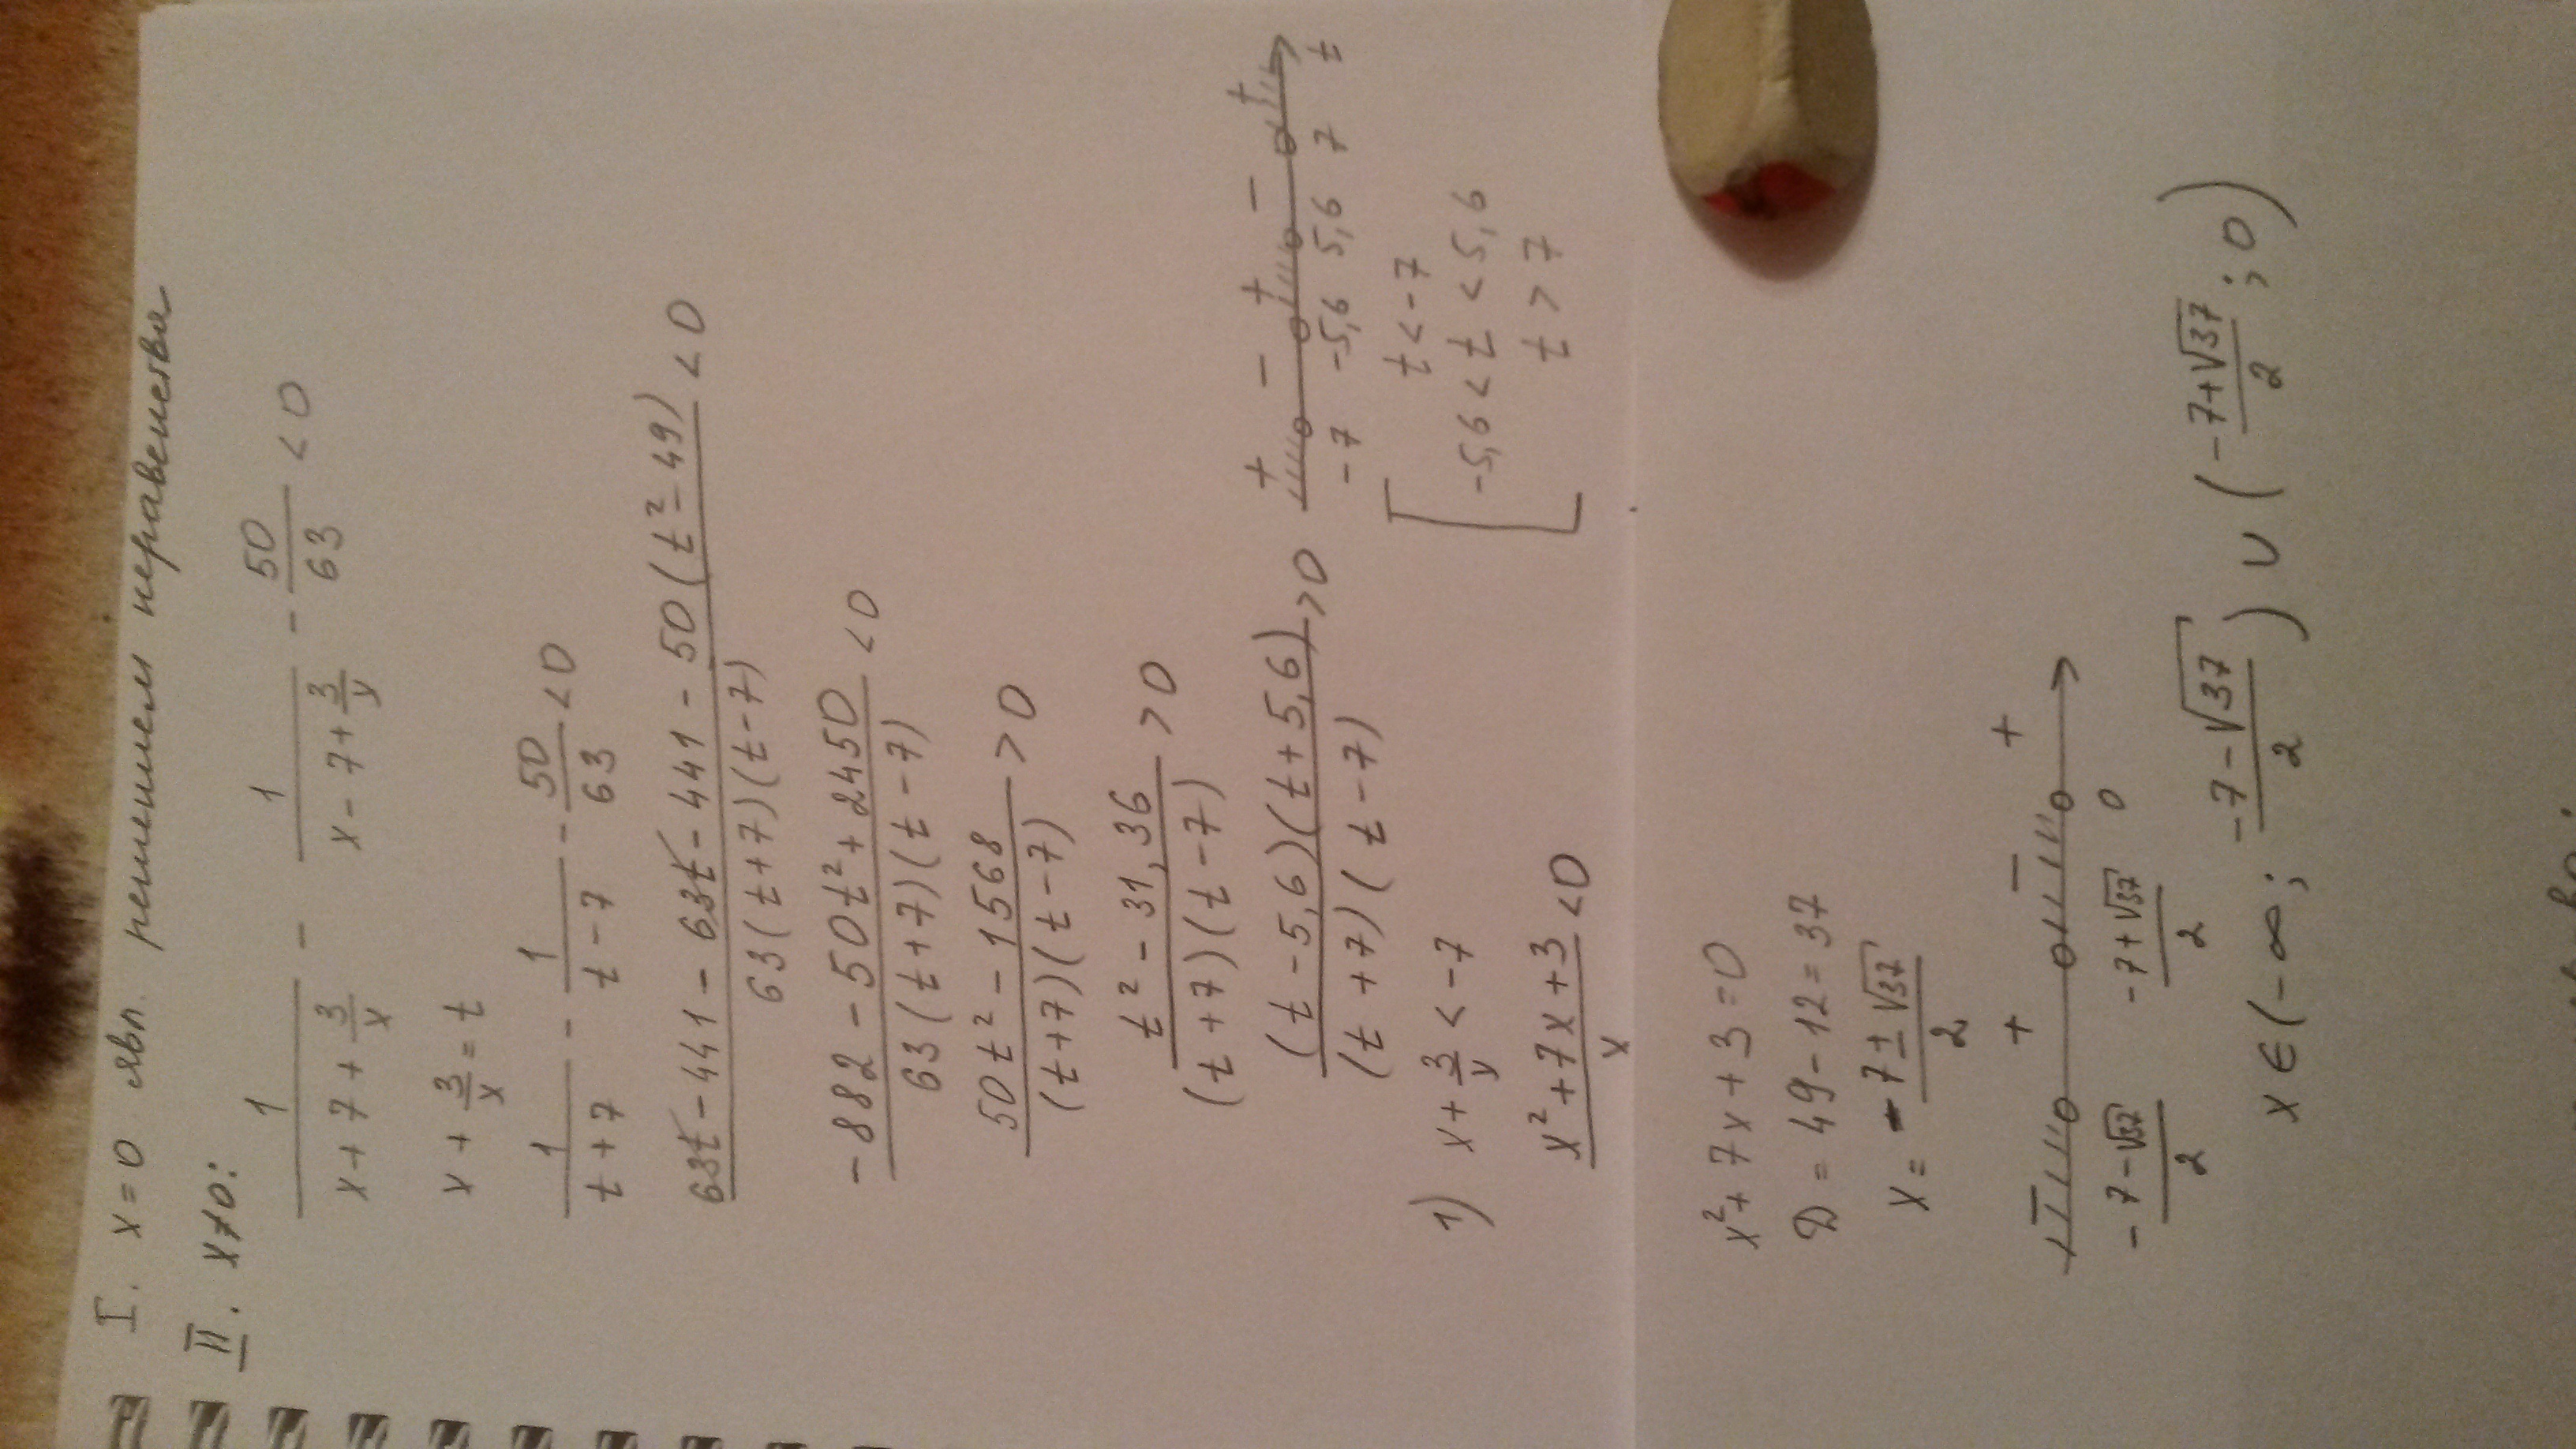 I. x=0 явл. решением неравенства
II. x≠0:
1/(x+7+3/x) - 1/(x-7+3/x) - 50/63 < 0
x+3/x=t
1/(t+7) - 1/(t-7) - 50/63 < 0
(63t-441-63t-441-50(t²-49))/(63(t+7)(t-7)) < 0
(-882-50t²+2450)/(63(t+7)(t-7)) < 0
(50t²-1568)/((t+7)(t-7)) > 0
(t²-31,36)/((t+7)(t-7)) > 0
((t-5,6)(t+5,6))/((t+7)(t-7)) > 0
+ - + - +
-7 -5,6 5,6 7 t
[ t<-7
-5,6<t<5,6
t>7
1) x+3/x < -7
(x²+7x+3)/x < 0
x²+7x+3=0
D=49-12=37
x=(-7±√37)/2
- + - +
(-7-√37)/2 (-7+√37)/2 0
x∈(-∞; (-7-√37)/2) ∪ ((-7+√37)/2; 0)